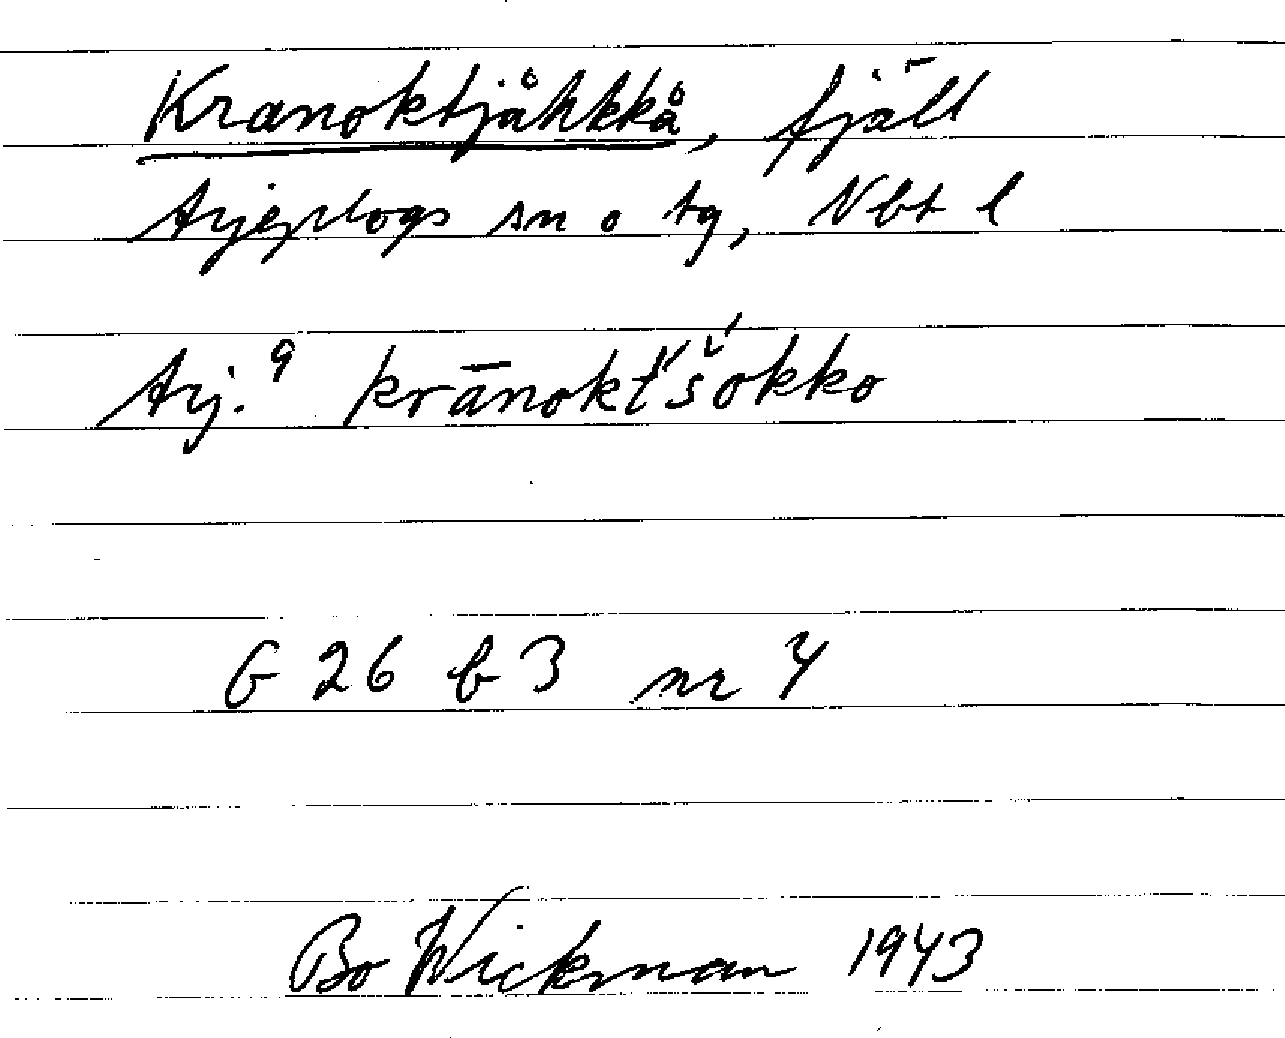 Kranoktjåhkkå, fjäll
Arjeplogs sn o tg, Nbt l
Arj.9 krānokt́'šokko
G 26 b 3 nr 4
Bo Wickman 1943